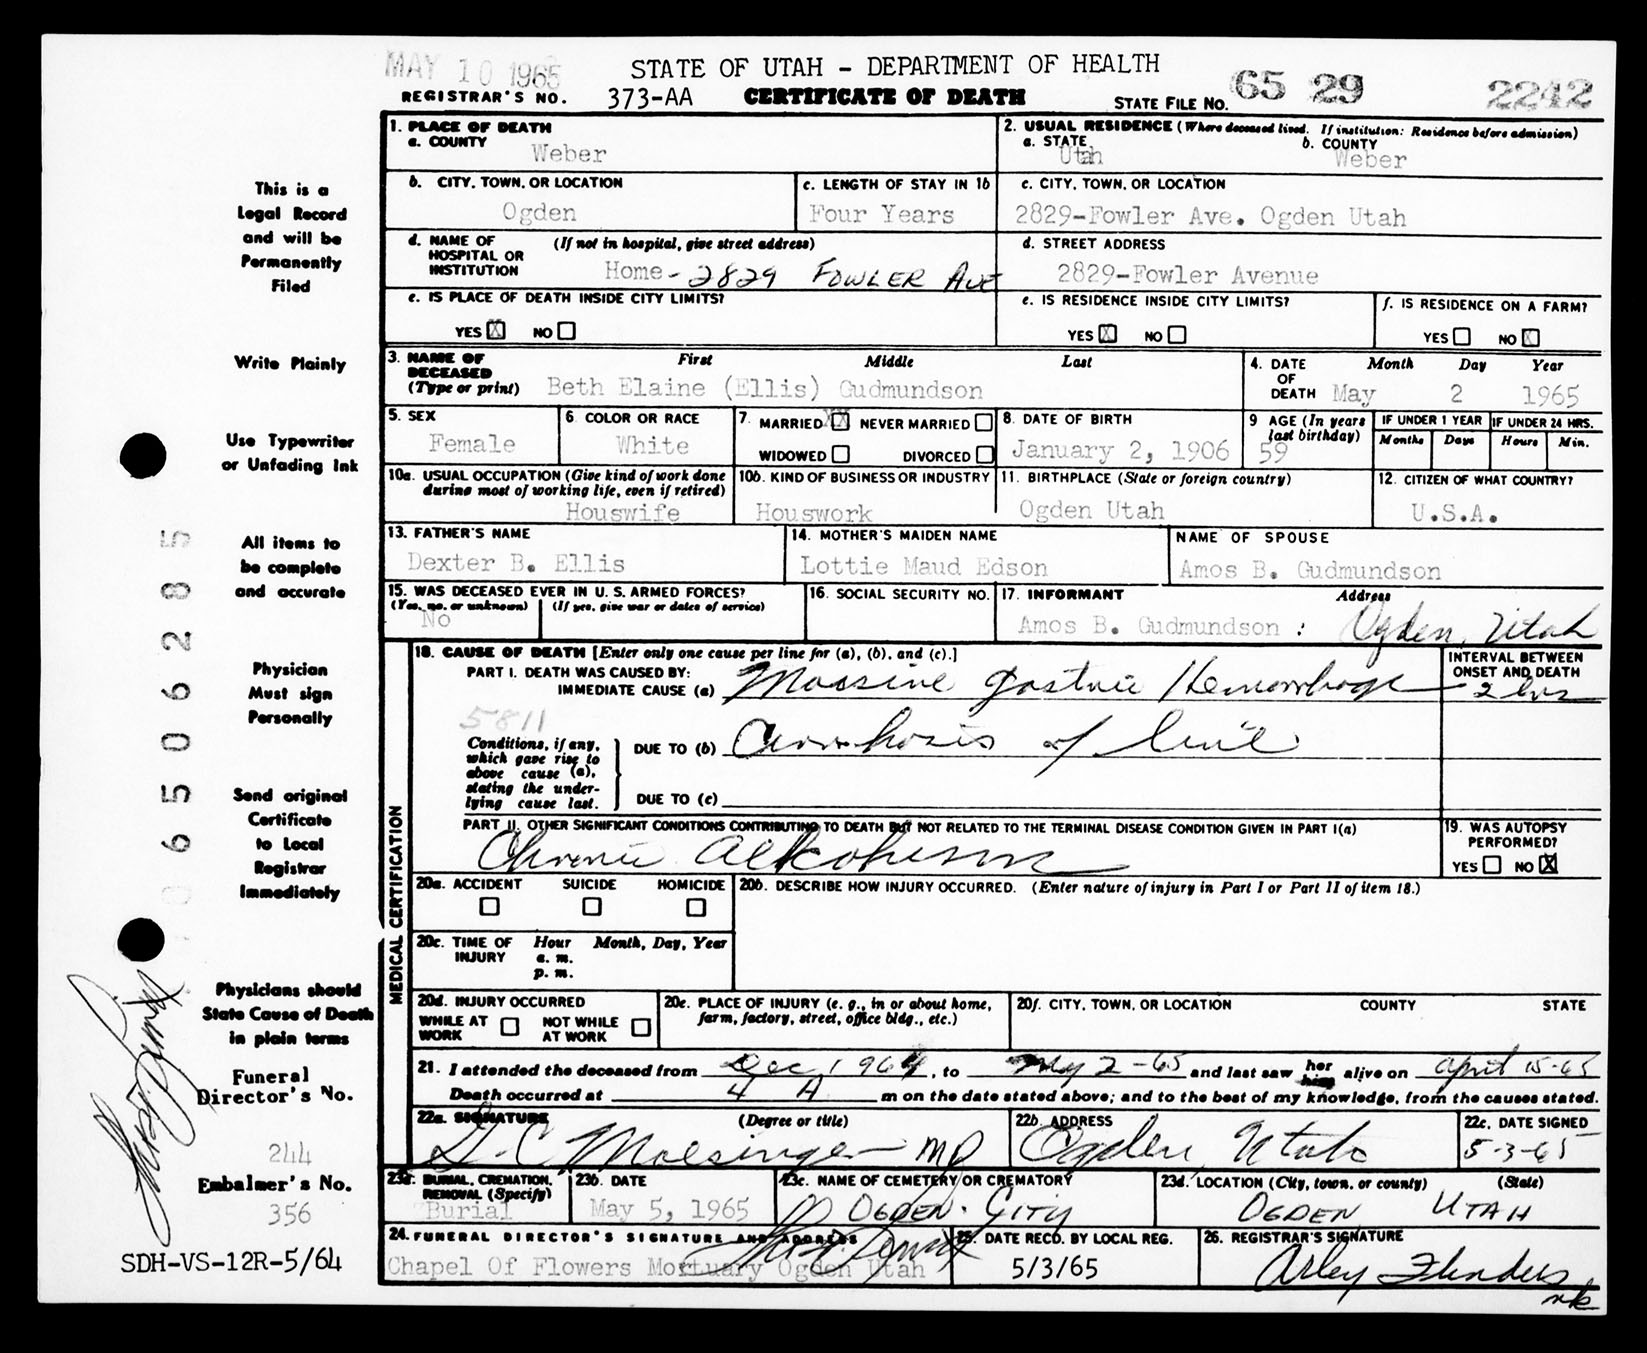 MAY 10 1965
STATE OF UTAH - DEPARTMENT OF HEALTH
REGISTRAR'S NO. 373-AA CERTIFICATE OF DEATH STATE FILE NO. 65 29 2242
1. PLACE OF DEATH
a. COUNTY
Weber
2. USUAL RESIDENCE (Where deceased lived. If institution: Residence before admission)
a. STATE b. COUNTY
Utah Weber
b. CITY, TOWN, OR LOCATION
Ogden
c. LENGTH OF STAY IN 1b
Four Years
c. CITY, TOWN, OR LOCATION
2829-Fowler Ave. Ogden Utah
d. NAME OF HOSPITAL OR INSTITUTION (If not in hospital, give street address)
Home - 2829 FOWLER AVE
d. STREET ADDRESS
2829-Fowler Avenue
e. IS PLACE OF DEATH INSIDE CITY LIMITS?
YES X NO
e. IS RESIDENCE INSIDE CITY LIMITS?
YES X NO
f. IS RESIDENCE ON A FARM?
YES NO X
3. NAME OF DECEASED (Type or print) First Middle Last
Beth Elaine (Ellis) Gudmundson
4. DATE OF DEATH Month Day Year
May 2 1965
5. SEX
Female
6. COLOR OR RACE
White
7. MARRIED XX NEVER MARRIED
WIDOWED DIVORCED
8. DATE OF BIRTH
January 2, 1906
9 AGE (In years last birthday)
59
IF UNDER 1 YEAR IF UNDER 24 HRS.
Months Days Hours Min.
10a. USUAL OCCUPATION (Give kind of work done during most of working life, even if retired)
Houswife
10b. KIND OF BUSINESS OR INDUSTRY
Houswork
11. BIRTHPLACE (State or foreign country)
Ogden Utah
12. CITIZEN OF WHAT COUNTRY?
U.S.A.
13. FATHER'S NAME
Dexter B. Ellis
14. MOTHER'S MAIDEN NAME
Lottie Maud Edson
NAME OF SPOUSE
Amos B. Gudmundson
15. WAS DECEASED EVER IN U. S. ARMED FORCES?
(Yes, no, or unknown) (If yes, give war or dates of service)
No
16. SOCIAL SECURITY NO.
17. INFORMANT Address
Amos B. Gudmundson : Ogden, Utah
MEDICAL CERTIFICATION
18. CAUSE OF DEATH [Enter only one cause per line for (a), (b), and (c).]
PART I. DEATH WAS CAUSED BY:
IMMEDIATE CAUSE (a) Massive Gastric Hemorrhage
INTERVAL BETWEEN ONSET AND DEATH
2 hrs
5811
Conditions, if any, which gave rise to above cause (a), stating the underlying cause last.
DUE TO (b) Cirrhosis of liver
DUE TO (c)
PART II. OTHER SIGNIFICANT CONDITIONS CONTRIBUTING TO DEATH BUT NOT RELATED TO THE TERMINAL DISEASE CONDITION GIVEN IN PART I(a)
Chronic Alcoholism
19. WAS AUTOPSY PERFORMED?
YES NO X
20a. ACCIDENT SUICIDE HOMICIDE
20b. DESCRIBE HOW INJURY OCCURRED. (Enter nature of injury in Part I or Part II of item 18.)
20c. TIME OF INJURY Hour Month, Day, Year
a. m.
p. m.
20d. INJURY OCCURRED
WHILE AT WORK NOT WHILE AT WORK
20e. PLACE OF INJURY (e. g., in or about home, farm, factory, street, office bldg., etc.)
20f. CITY, TOWN, OR LOCATION COUNTY STATE
21. I attended the deceased from Dec 1964, to May 2-65 and last saw her him alive on April 15-65
Death occurred at 4 A m on the date stated above; and to the best of my knowledge, from the causes stated.
22a. SIGNATURE (Degree or title)
Moesinger MD
22b. ADDRESS
Ogden, Utah
22c. DATE SIGNED
5-3-65
23a. BURIAL, CREMATION, REMOVAL (Specify)
Burial
23b. DATE
May 5, 1965
23c. NAME OF CEMETERY OR CREMATORY
OGDEN. CITY
23d. LOCATION (City, town, or county) (State)
OGDEN UTAH
24. FUNERAL DIRECTOR'S SIGNATURE AND ADDRESS
Chapel Of Flowers Mortuary Ogden Utah
25. DATE RECD. BY LOCAL REG.
5/3/65
26. REGISTRAR'S SIGNATURE
Arley Flinders
nk
This is a
Legal Record
and will be
Permanently
Filed
Write Plainly
Use Typewriter
or Unfading Ink
All items to
be complete
and accurate
Physician
Must sign
Personally
Send original
Certificate
to Local
Registrar
Immediately
Physicians should
State Cause of Death
in plain terms
Funeral
Director's No.
244
Embalmer's No.
356
SDH-VS-12R-5/64
0 6 5 0 6 2 8 5